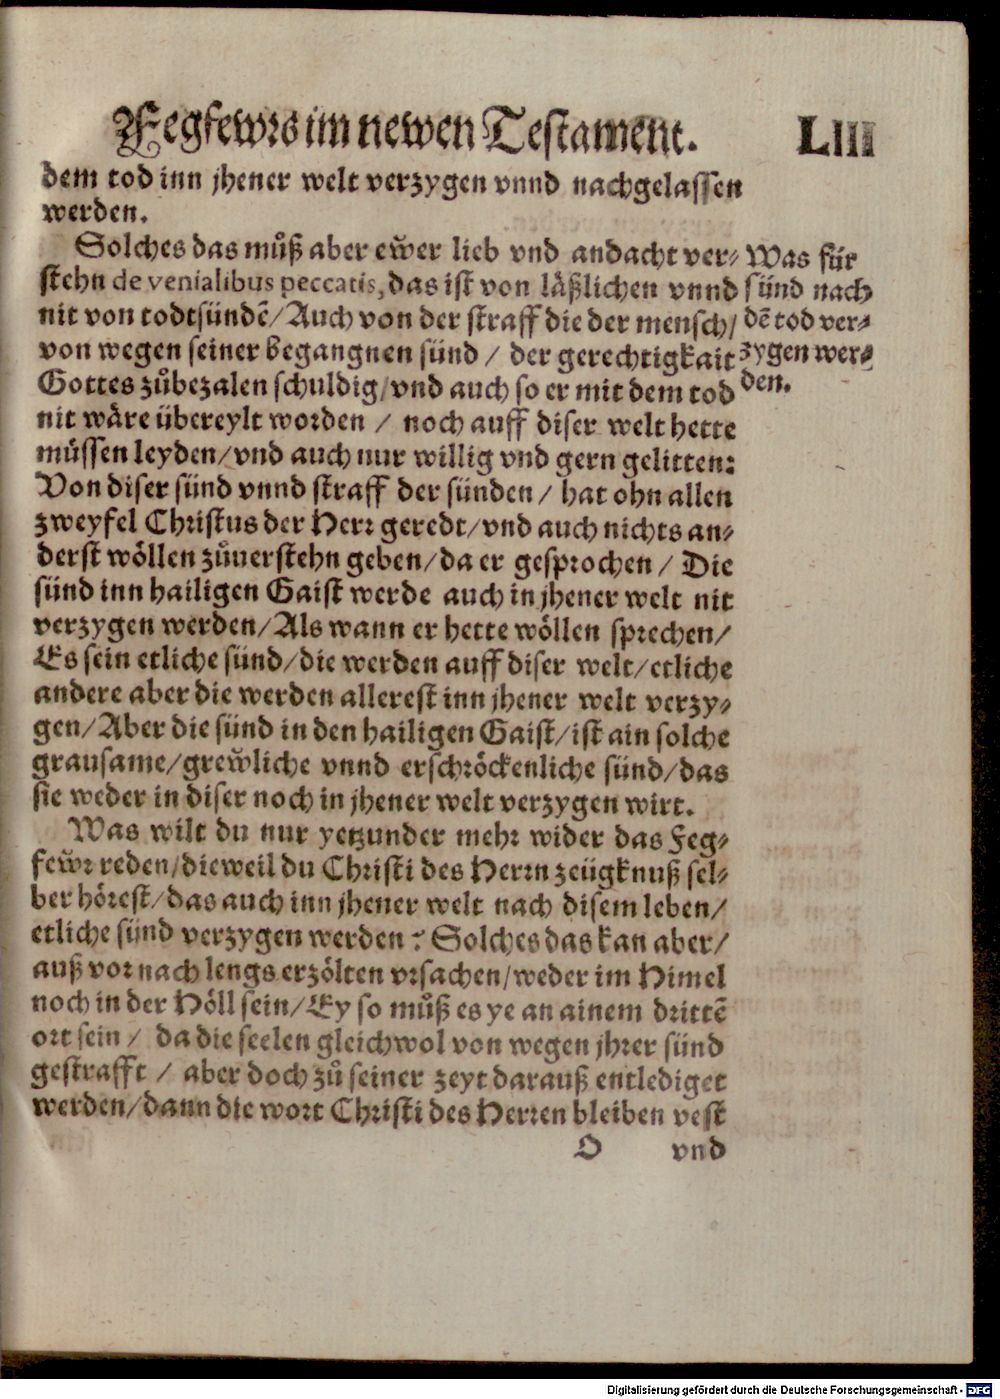 Fegfewrs im newen Testament. LIII
dem tod inn jhener welt verzygen vnnd nachgelassen
werden.
Solches das můß aber ew̌er lieb vnd andacht ver-
stehn de venialibus peccatis, das ist von läßlichen vnnd
nit von todtsündẽ/ Auch von der straff die der mensch/
von wegen seiner begangnen sünd / der gerechtigkait
Gottes zůbezalen schuldig/ vnd auch so er mit dem tod
nit wäre übereylt worden / noch auff diser welt hette
müssen leyden/ vnd auch nur willig vnd gern gelitten:
Von diser sünd vnnd straff der sünden / hat ohn allen
zweyfel Christus der Herr geredt/ vnd auch nichts an-
derst wöllen zůuerstehn geben/ da er gesprochen / Die
sünd inn hailigen Gaist werde auch in jhener welt nit
verzygen werden/ Als wann er hette wöllen sprechen/
Es sein etliche sünd/ die werden auff diser welt/ etliche
andere aber die werden allererst inn jhener welt verzy-
gen/ Aber die sünd in den hailigen Gaist/ ist ain solche
grausame/ grew̌liche vnnd erschröckenliche sünd/ das
sie weder in diser noch in jhener welt verzygen wirt.
Was wilt du nur yetzunder mehr wider das Feg-
few̌r reden/ dieweil du Christi des Herrn zeügknuß sel-
ber hörest/ das auch inn jhener welt nach disem leben/
etliche sünd verzygen werden? Solches das kan aber/
auß vor nach lengs erzölten vrsachen/ weder im Himel
noch in der Höll sein/ Ey so můß es ye an ainem drittẽ
ort sein / da die seelen gleichwol von wegen jhrer sünd
gestrafft / aber doch zů seiner zeyt darauß entlediget
werden/ dann die wort Christi des Herren bleiben vest
O vnd
Was für
sünd nach
dẽ tod ver-
zygen wer-
den.
Digitalisierung gefördert durch die Deutsche Forschungsgemeinschaft - DFG